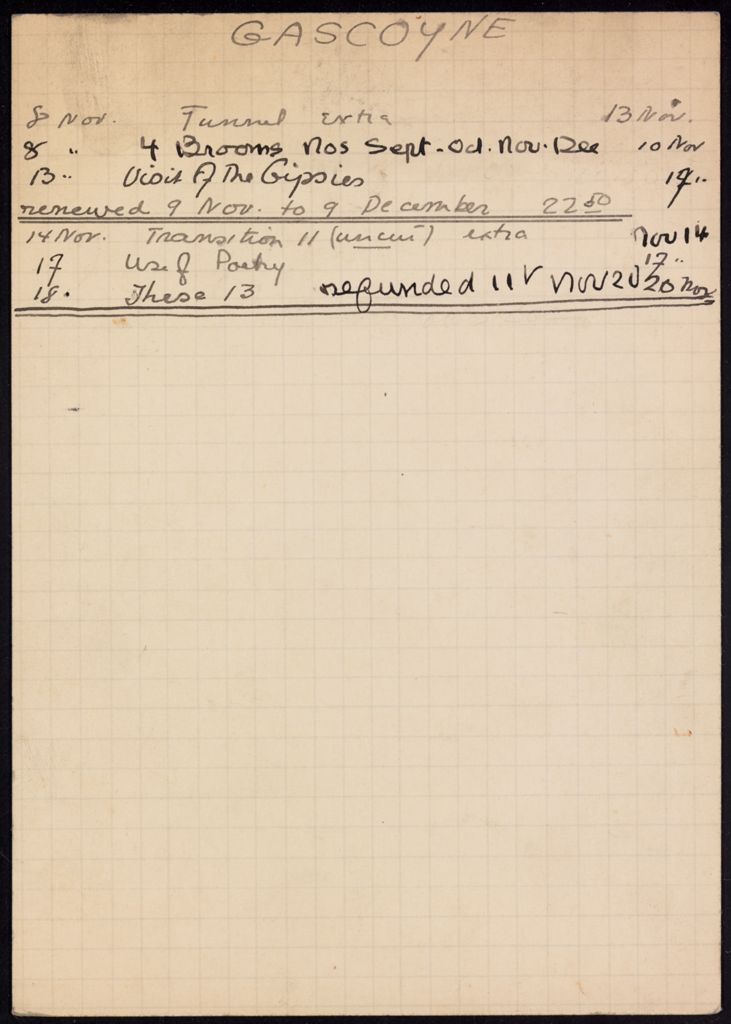 GASCOYNE
8 Nov. Tunnel extra 13 Nov.
8 " 4 Brooms Nos Sept-Oct. Nov. Dec 10 Nov
13 " Visit of the Gipsies 17 "
renewed 9 Nov. to 9 December 22 50
14 Nov. Transition 11 (uncut) extra Nov 14
17 Use of Poetry 17 "
18. These 13 refunded Nov 20 20 Nov